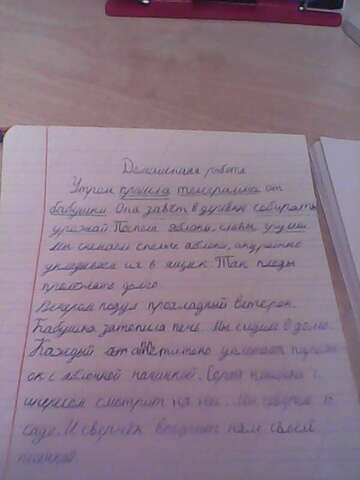 Домашняя работа
Утром пришла телеграмма от
бабушки. Она завёт в деревню собирать
урожай. Поспели яблоки, сливы, груши.
Мы снимаем спелые яблоки, аккуратно
укладываем их в ящик. Так плоды
пролежат долго.
Вечером подул прохладный ветерок.
Бабушка затопила печь. Мы сидим в доме.
Каждый аппетитно уплетает пирож
ок с яблочной начинкой. Серая кошка с
интересом смотрит на нас. Мы говорим о
саде. И сверчёк вторит нам своей
песенкой.